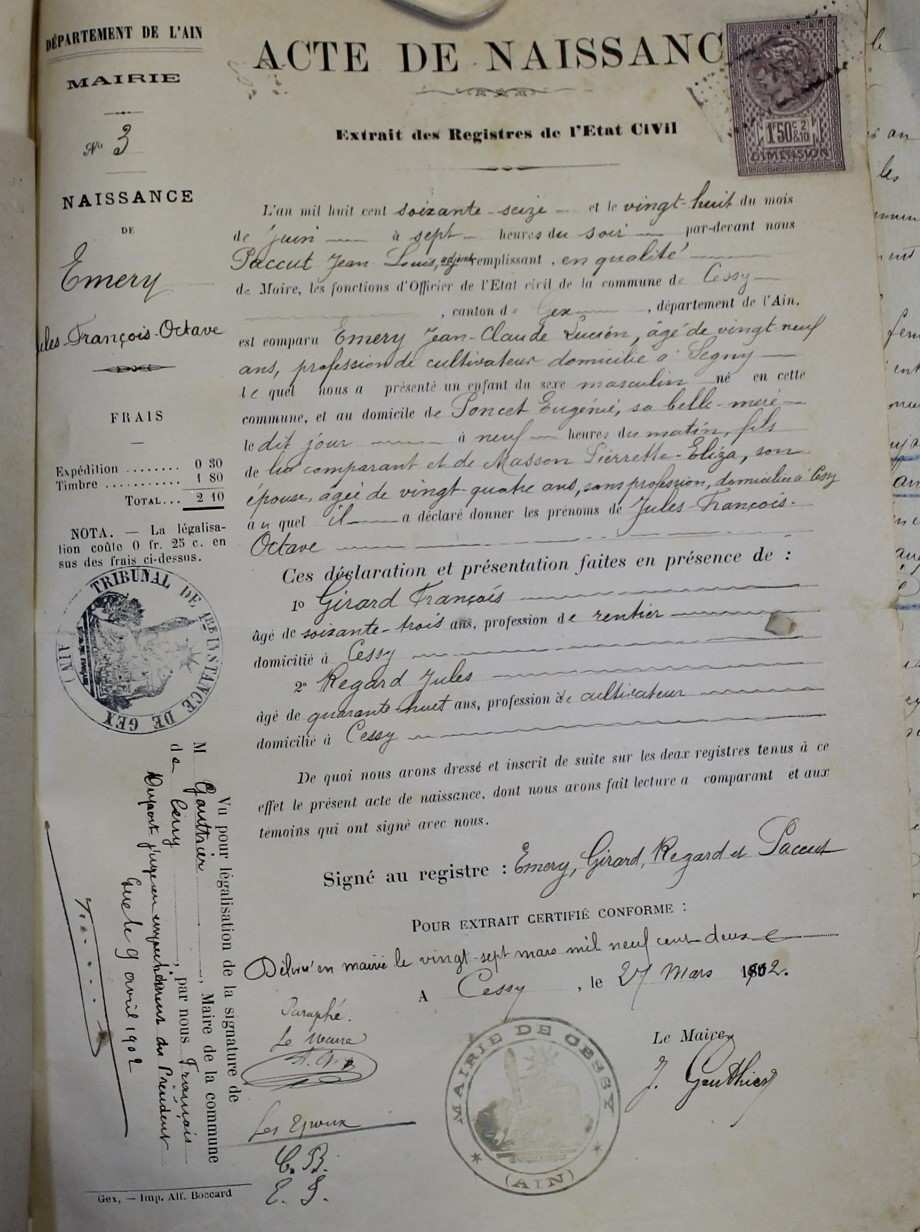 DÉPARTEMENT DE L'AIN
MAIRIE
N° 3
NAISSANCE
DE
Emery
Jules-François-Octave
FRAIS
Expédition ........ 0 30
Timbre ........... 1 80
TOTAL... 2 10
NOTA. — La légalisa-
tion coûte 0 fr. 25 c. en
sus des frais ci-dessus.
TRIBUNAL DE 1RE INSTANCE DE GEX (AIN)
Vu pour légalisation de la signature de
M Gauthier, Maire de la commune
de Cessy, par nous François
Dupont juge en empêchement du Président
Gex le 9 avril 1902
ACTE DE NAISSANC
1F50 C 2
DIMENSION
Extrait des Registres de l'Etat CiVil
L'an mil huit cent soixante-seize et le vingt-huit du mois
de juin à sept heures du soir par-devant nous
Paccut Jean Louis, adjoint remplissant, en qualité
de Maire, les fonctions d'Officier de l'Etat civil de la commune de Cessy
, canton de Gex, département de l'Ain.
est comparu Emery Jean-Claude Lucien, âgé de vingt neuf
ans, profession de cultivateur domicilié à Segny
Le quel nous a présenté un enfant du sexe masculin né en cette
commune, et au domicile de Poncet Eugénie, sa belle-mère
le dit jour à neuf heures du matin, fils
de lui comparant et de Masson Pierrette-Eliza, son
épouse, âgée de vingt-quatre ans, sans profession, domiciliée à Cessy
au quel il a déclaré donner les prénoms de Jules-François-
Octave
Ces déclaration et présentation faites en présence de :
1o Girard François
âgé de soixante-trois ans, profession de rentier
domicilié à Cessy
2o Regard Jules
âgé de quarante-huit ans, profession de cultivateur
domicilié à Cessy
De quoi nous avons dressé et inscrit de suite sur les deux registres tenus à ce
effet le présent acte de naissance, dont nous avons fait lecture a comparant et aux
témoins qui ont signé avec nous.
Signé au registre : Emery, Girard, Regard et Paccut
POUR EXTRAIT CERTIFIÉ CONFORME :
Délivré en mairie le vingt-sept mars mil neuf cent deux
A Cessy, le 27 Mars 1902.
Le Maire
J. Gauthier
MAIRIE DE CESSY (AIN)
Paraphé.
Le
Les Epoux
C. B.
E. J.
Gex, — Imp. Alf. Boccard